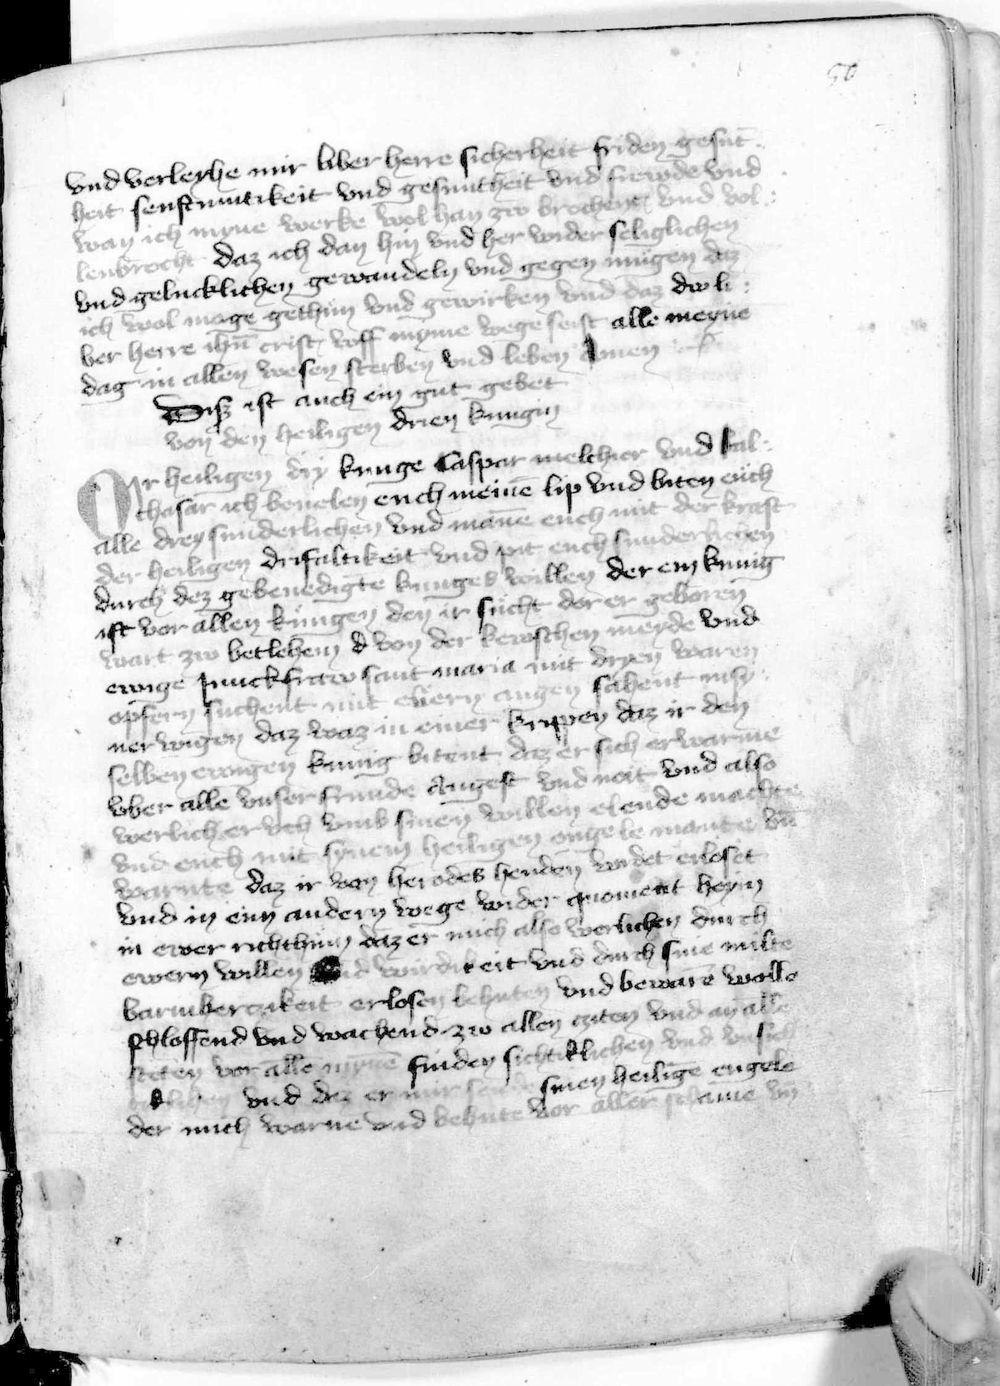 50
vnd verleyhe mir liber herre sicherheit friden gesūt
heit senftmutikeit vnd gesuntheit vnd frewde vnd
wan ich myne werke wol han zw brochent vnd vol:
lenbrocht daz ich dan hin vnd her wider seliglichen
vnd gelucklichen gewandeln vnd gegen mugen daz
ich wol moge gethun vnd gewirken vnd daz dw li:
ber herre ihū crist vff myme wege seist alle meyne
dag in allen wesen sterben vnd leben Amen
Disz ist auch ein gut gebet
von den heiligen drien kungin
Ir heiligen dry kunge Caspar melchior vnd bal:
thasar ich beuelen euch meinē lip vnd biten euch
alle drey sunderlichen vnd manē euch mit der kraft
der heiligen drifaltikeit vnd pit euch sunderlichen
durch dez gebenedigte kunges willen der ein kunig
ist vor allen kungen den ir sucht der er geboren
wart zw betlehem d von der kewschen meyde vnd
ewige junckfraw sant maria mit dryen waren
opfern suchent mit ewern augen sahent
ner wigen daz waz in einer krippen daz ir den
selben ewigen kunig bitent daz er sich erwarme
vber alle vnser sunde Angest vnd noit vnd also
werlich er veh vmb sinen willen elende machte
vnd euch mit synem heiligen engele mante vn̄
warnte daz ir von herodes henden wrdet erloset
vnd in einn andern wege wider quoment heym
in ewer richthum daz er mich also werlichen durch
ewern willen vnd wirdikeit vnd durch sine milte
barmherczikeit erlosen behuten vnd bewarē wolle
schloffend vnd wachend zw allen ziten vnd an alle
steten vor allē mynē finden sichtiklichen vnd vnsich
lichen vnd daz er mir sende sinen heiligē engele
der mich warne vnd behute vor aller schame vn̄